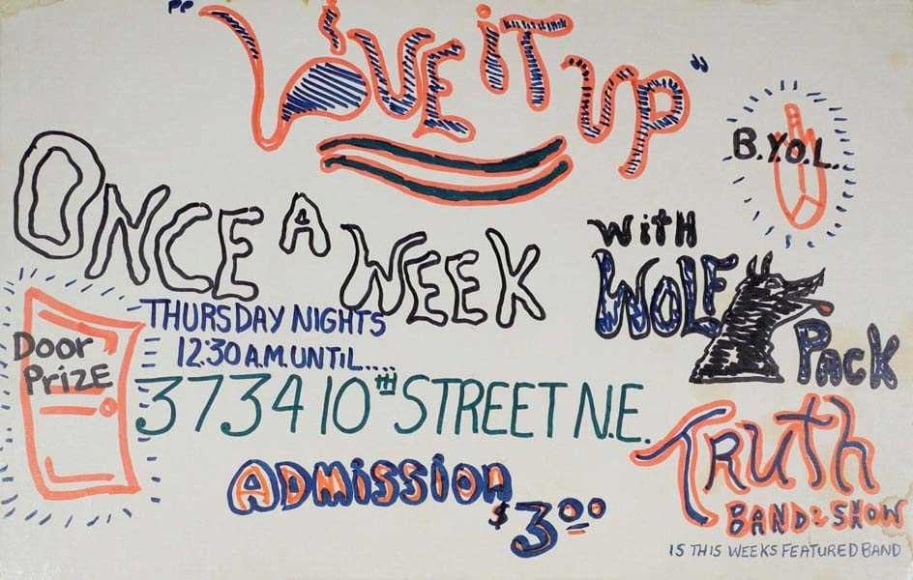 "LOVE IT UP"
B.Y.O.L..
ONCE A WEEK
WITH
WOLF
PACK
THURSDAY NIGHTS
12:30 A.M. UNTIL....
3734 10th STREET N.E.
Door
PRIZE
ADMISSION
$3.00
TRUTH
BAND & SHOW
IS THIS WEEKS FEATURED BAND